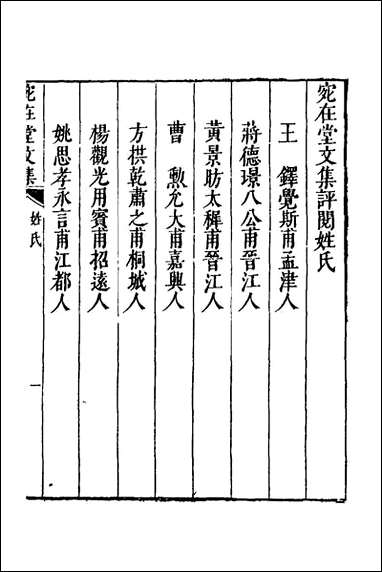 宛在堂文集評閱姓氏
王　鐸覺斯甫孟津人
蔣德璟八公甫晉江人
黃景昉太穉甫晉江人
曹　勲允大甫嘉興人
方拱乾肅之甫桐城人
楊觀光用賓甫招遠人
姚思孝永言甫江都人
宛在堂文集　姓氏　一